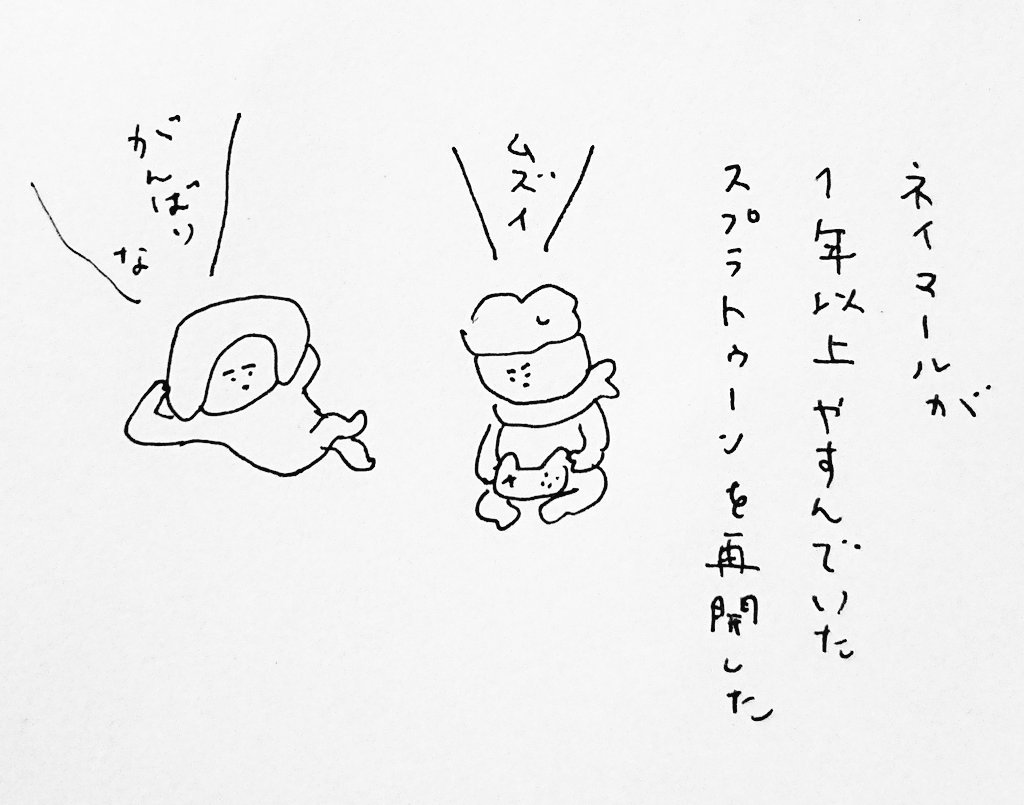 ネイマールが
1年以上やすんでいた
スプラトゥーンを再開した
ムズイ
がんばり
な